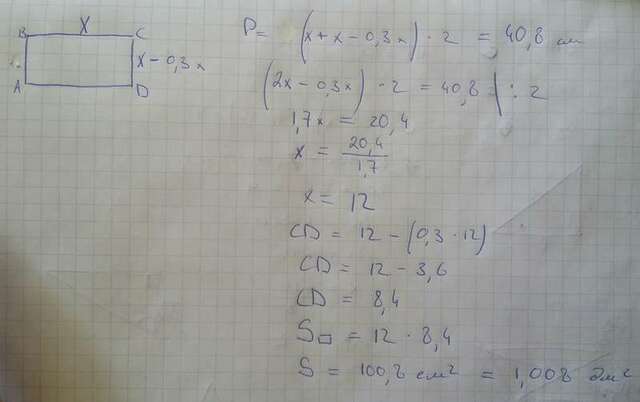 B X C
x - 0,3x
A D
P = (x + x - 0,3x) · 2 = 40,8 см
(2x - 0,3x) · 2 = 40,8 | : 2
1,7x = 20,4
x = 20,4/1,7
x = 12
CD = 12 - (0,3 · 12)
CD = 12 - 3,6
CD = 8,4
S▭ = 12 · 8,4
S = 100,8 см² = 1,008 дм²